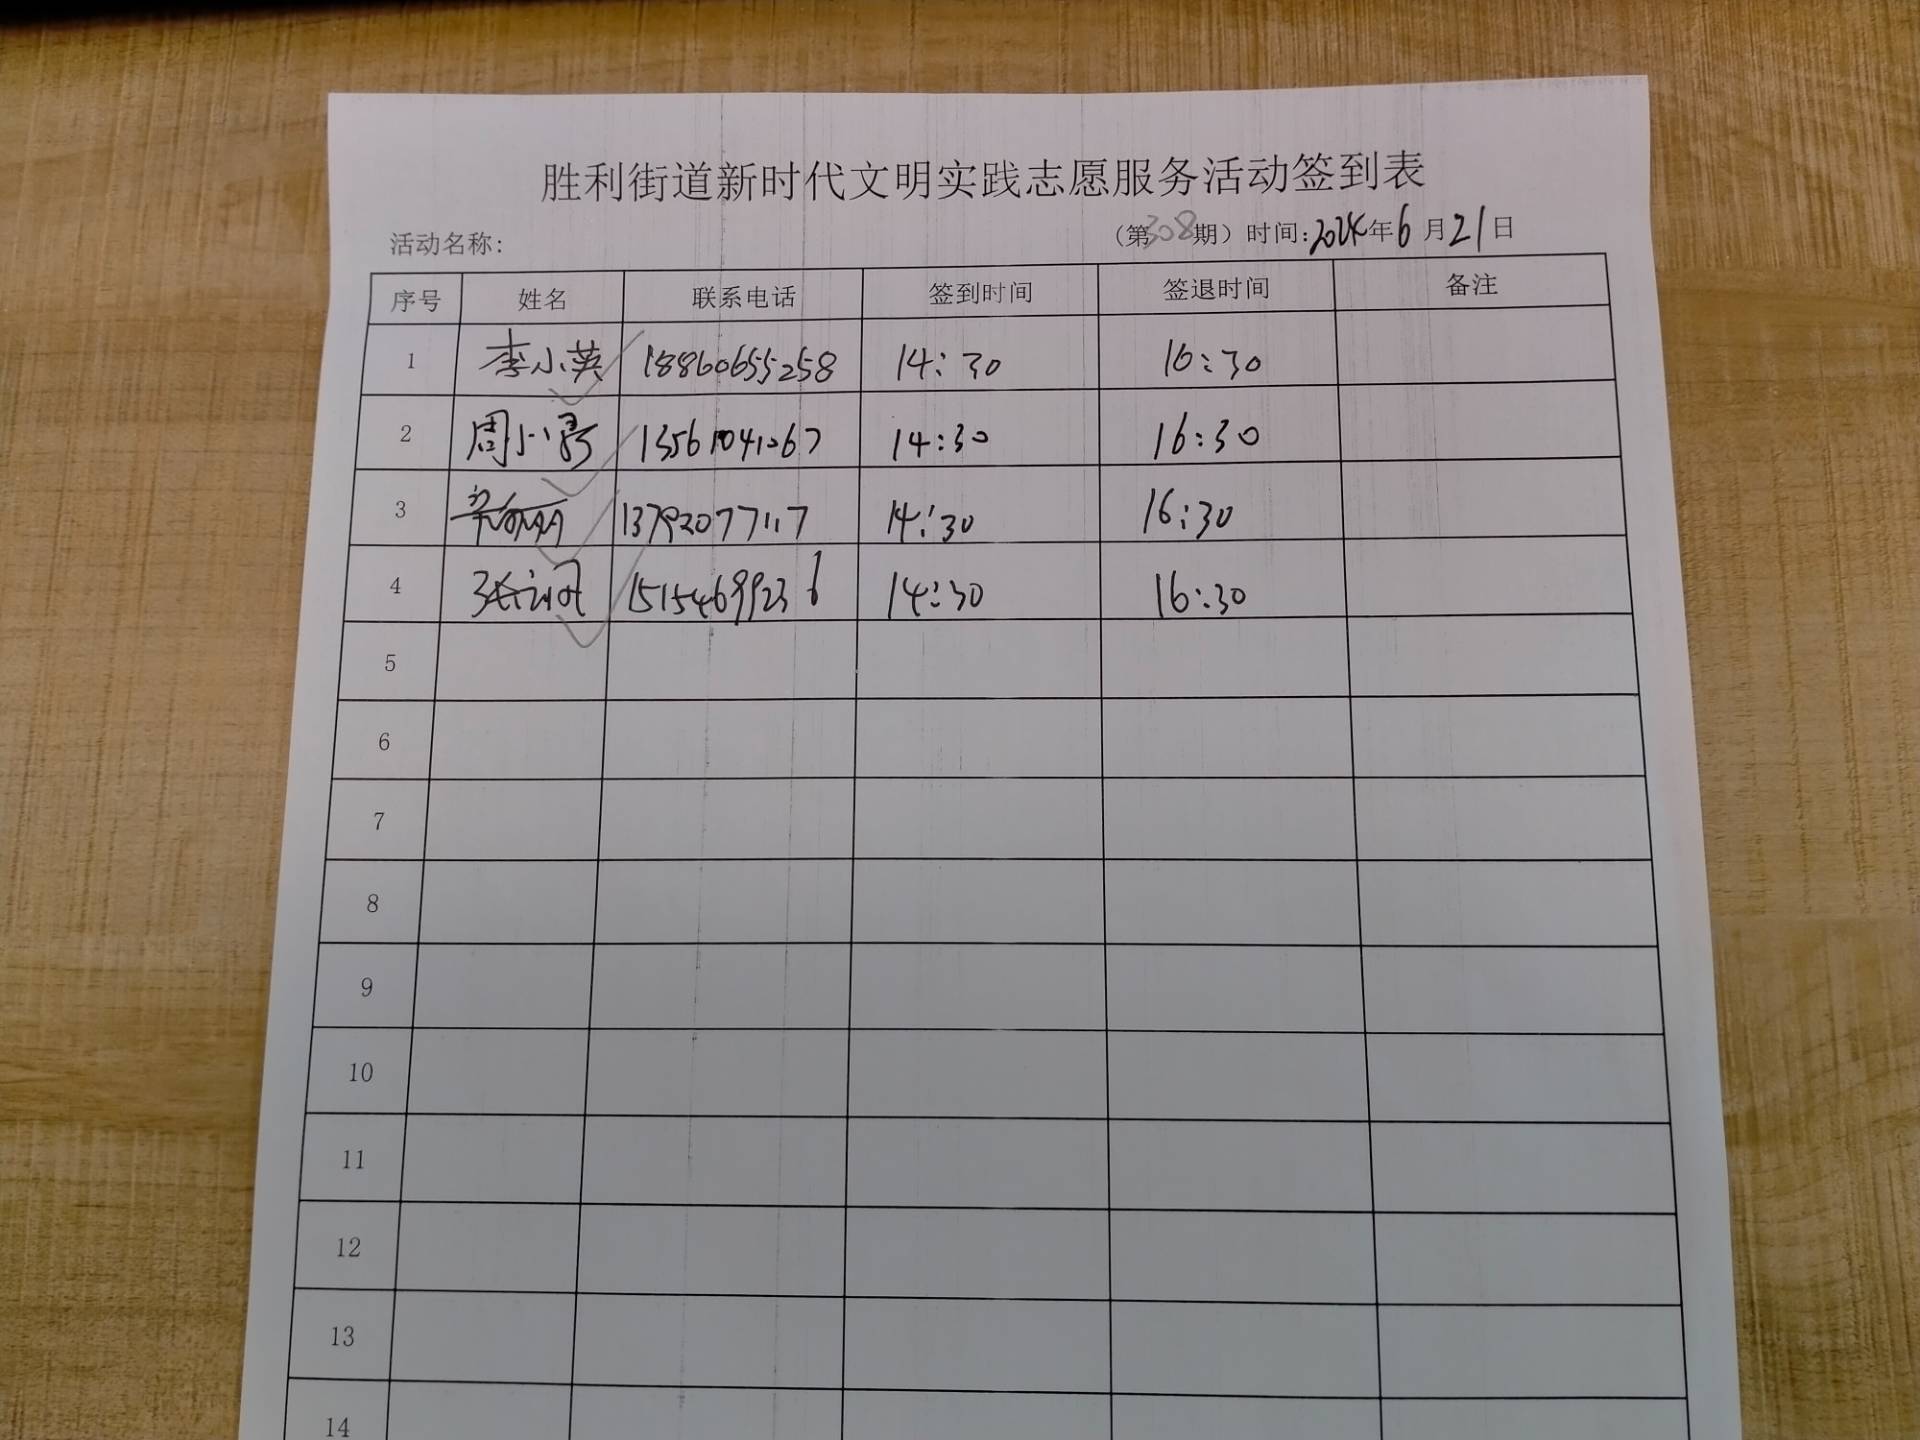 胜利街道新时代文明实践志愿服务活动签到表
活动名称: （第308期）时间:2024年6月21日
序号 姓名 联系电话 签到时间 签退时间 备注
1 李小英 18860655258 14:30 16:30
2 周小 13561041067 14:30 16:30
3 13792077117 14:30 16:30
4 张 15154699236 14:30 16:30
5
6
7
8
9
10
11
12
13
14